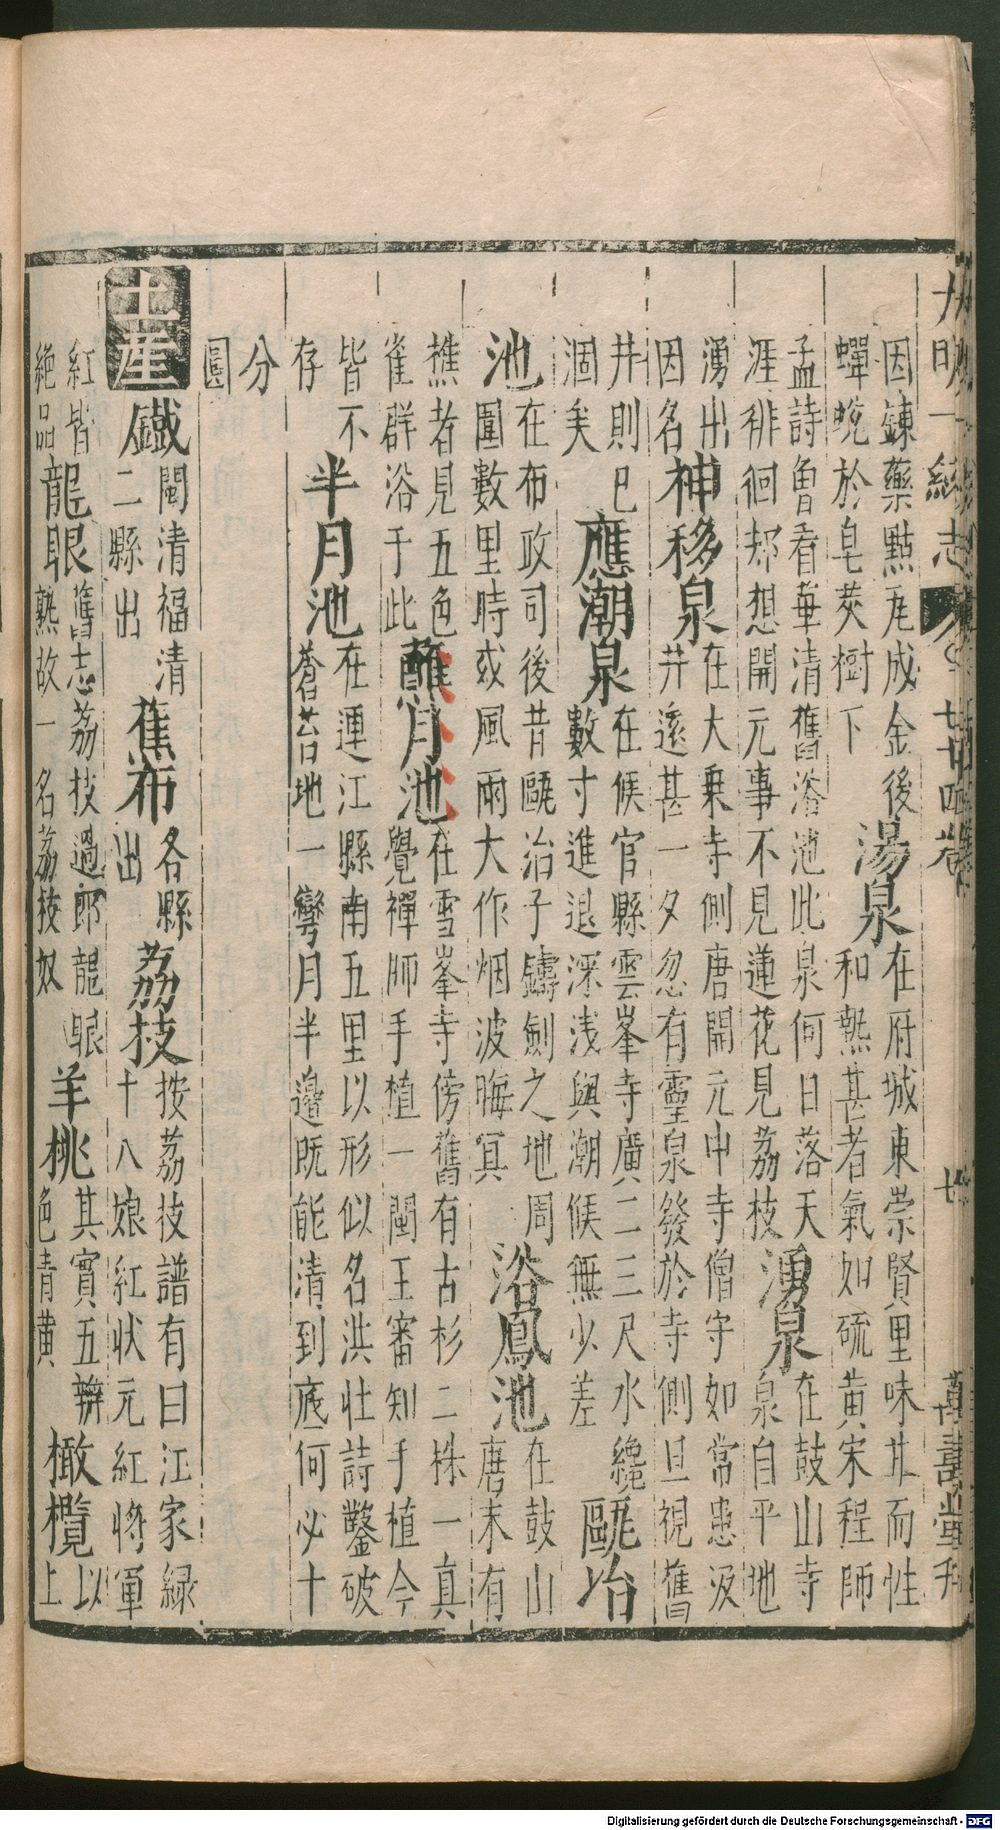 大明一統志
七十四卷
十
萬壽堂刊
因鍊藥點瓦成金後
蟬蛻於皂莢樹下
湯泉
在府城東崇賢里味甘而性
和熱甚者氣如硫黄宋程師
孟詩曾看華清舊浴池此泉何日落天
涯徘徊却想開元事不見蓮花見荔枝
湧泉
在鼓山寺
泉自平地
湧出
因名
神移泉
在大乗寺側唐開元中寺僧宇如常患汲
井遠甚一夕忽有靈泉發於寺側旦視舊
井則已
涸矣
應潮泉
在候官縣雲峯寺廣二三尺水纔
數寸進退深浅與潮候無少差
甌冶
池
在布政司後昔甌冶子鑄劍之地周
圍數里時或風雨大作烟波晦冥
浴鳳池
在鼓山
唐末有
樵者見五色
雀群浴于此
醮月池
在雪峯寺傍舊有古杉二株一真
覺禪師手植一閩王審知手植今
皆不
存
半月池
在連江縣南五里以形似名洪壯詩鑿破
蒼苔地一彎月半邊既能清到底何必十
分
圓
土産
鐵
閩清福清
二縣出
蕉布
各縣
出
荔枝
按荔枝譜有曰江家緑
十八娘紅状元紅将軍
紅皆
絶品
龍眼
舊志荔枝過郎龍眼
熟故一名荔枝奴
羊桃
其實五辦
色青黄
橄欖
以
上
Digitalisierung gefördert durch die Deutsche Forschungsgemeinschaft - DFG